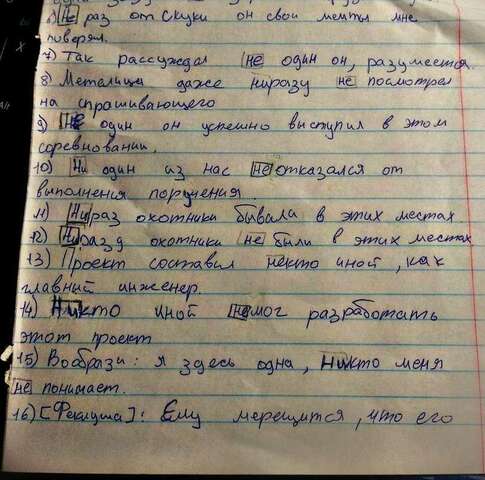 6) Не раз от скуки он свои мечты мне
поверял.
7) Так рассуждал не один он, разумеется.
8) Метелица даже ниразу не посмотрел
на спрашивающего
9) Не один он успешно выступил в этом
соревновании.
10) Ни один из нас не отказался от
выполнения поручения
11) Нираз охотники бывали в этих местах
12) Ниразу охотники не были в этих местах
13) Проект составил некто иной, как
главний инженер.
14) Никто иной немог разработать
этот проект
15) Вообрази: я здесь одна, никто меня
не понимает.
16) [Феклуша]: Ему мерещится, что его